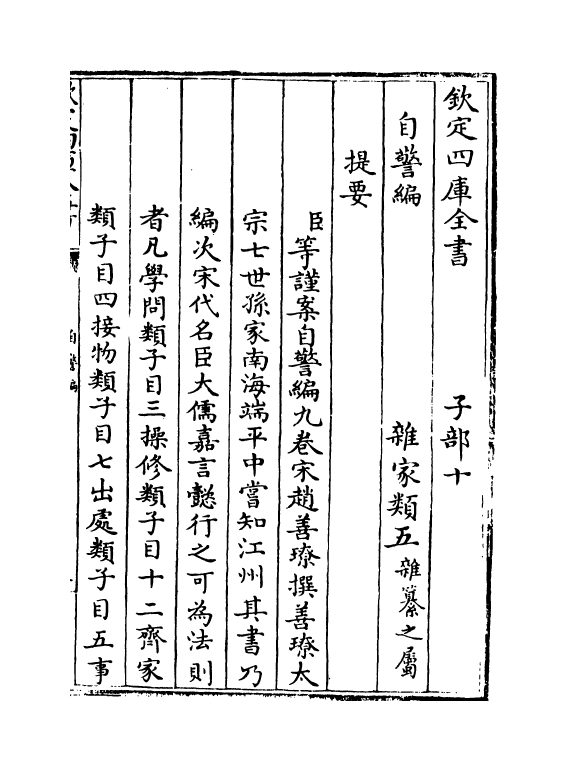 欽定四庫全書　　子部十
自警編　　雜家類五雜纂之屬
提要
臣等謹案自警編九卷宋趙善璙撰善璙太
宗七世孫家南海端平中嘗知江州其書乃
編次宋代名臣大儒嘉言懿行之可為法則
者凡學問類子目三操修類子目十二齊家
類子目四接物類子目七出處類子目五事
自警編